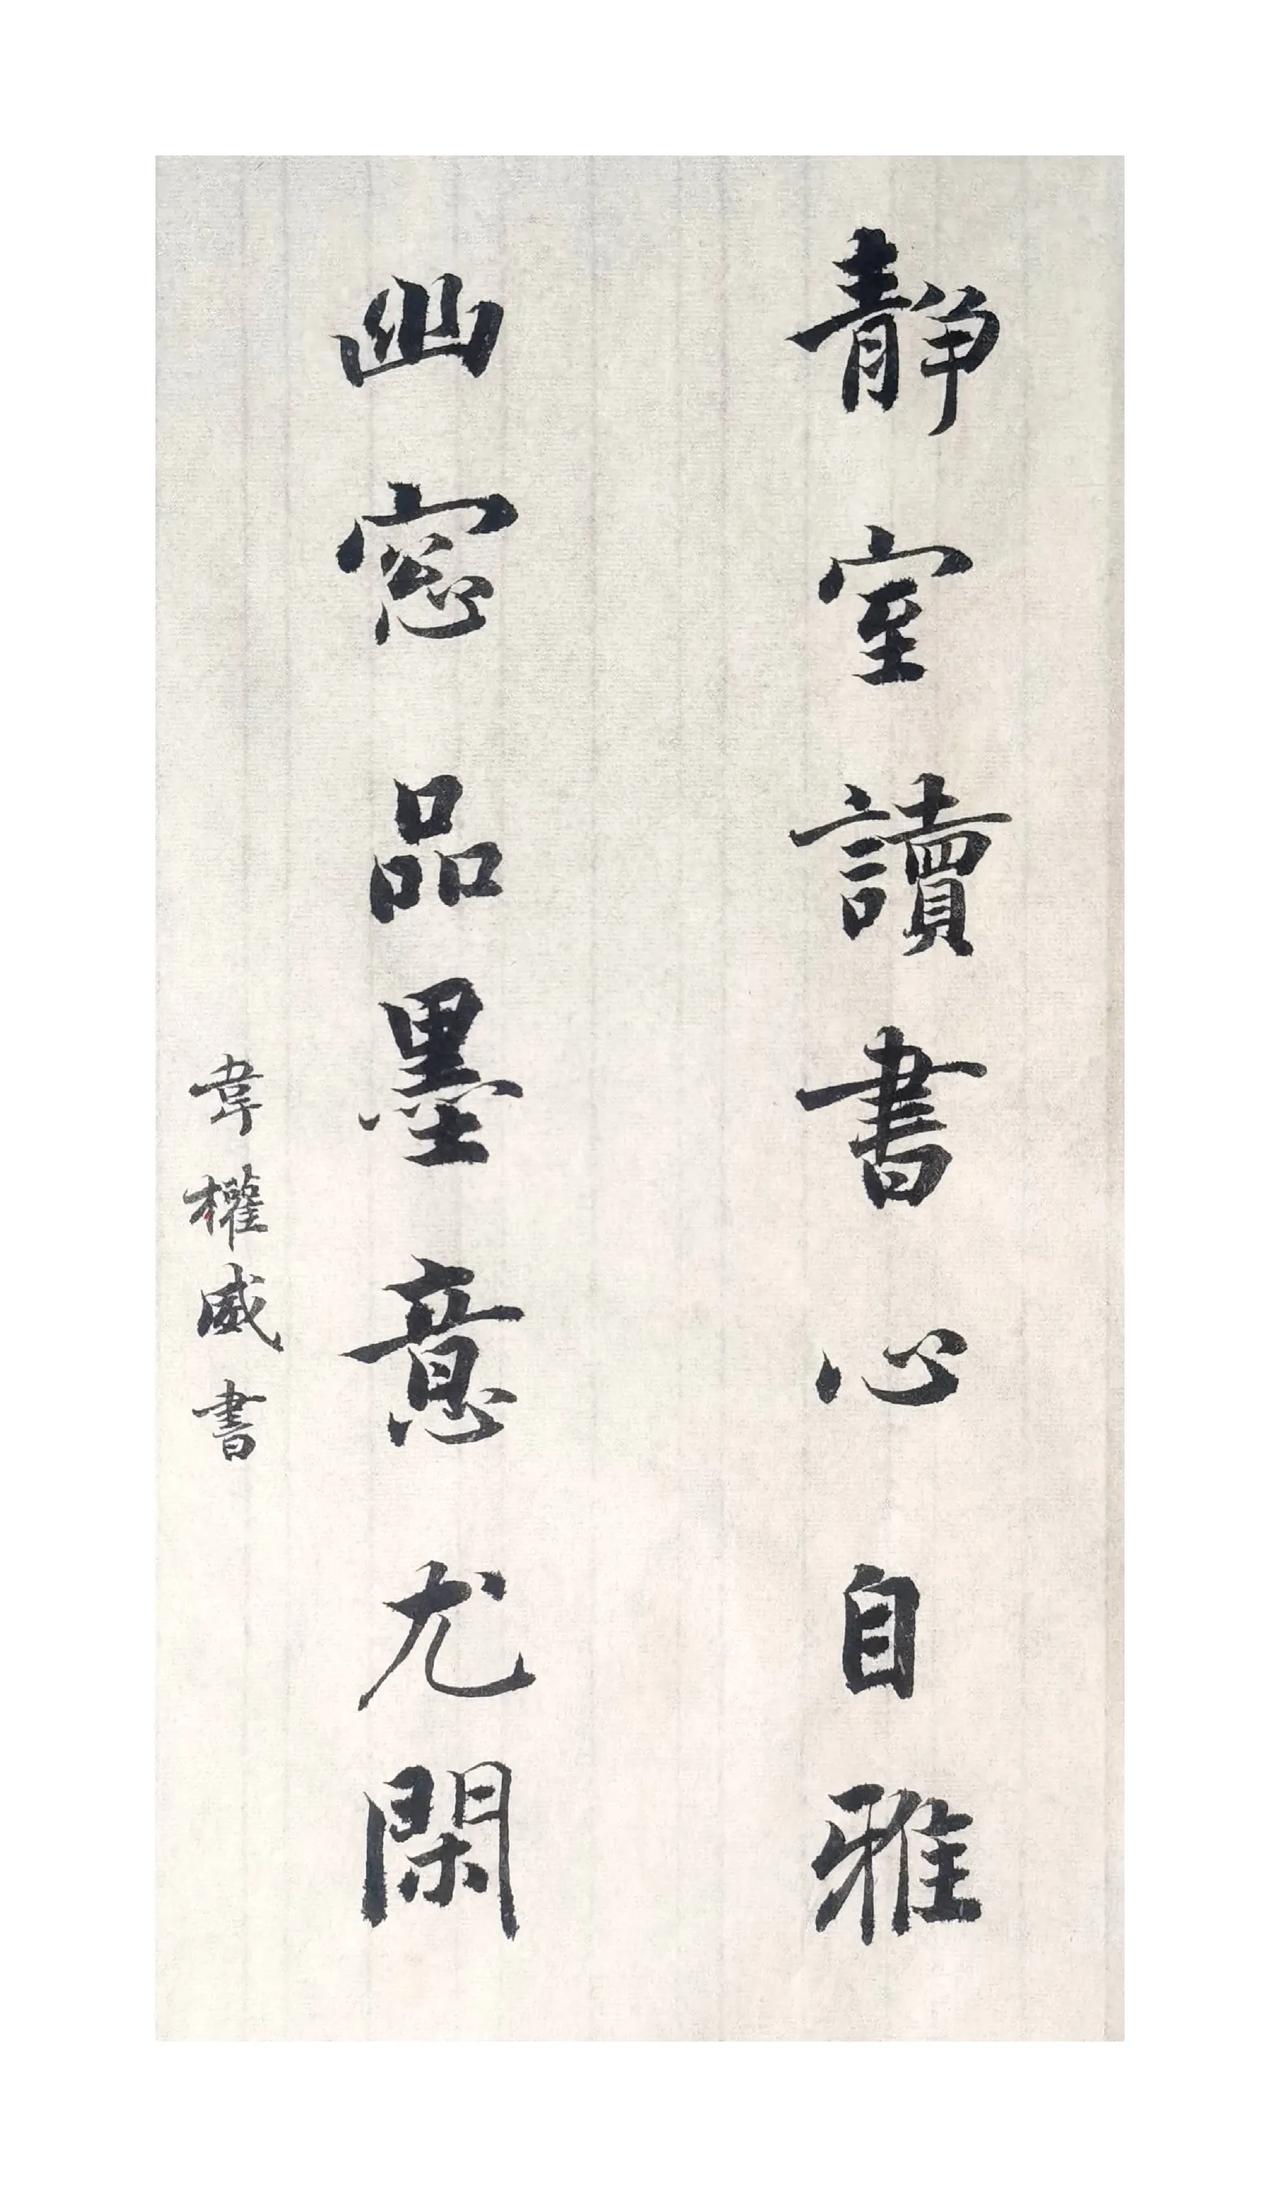 靜室讀書心自雅
幽窓品墨意尤閑
韋權威書